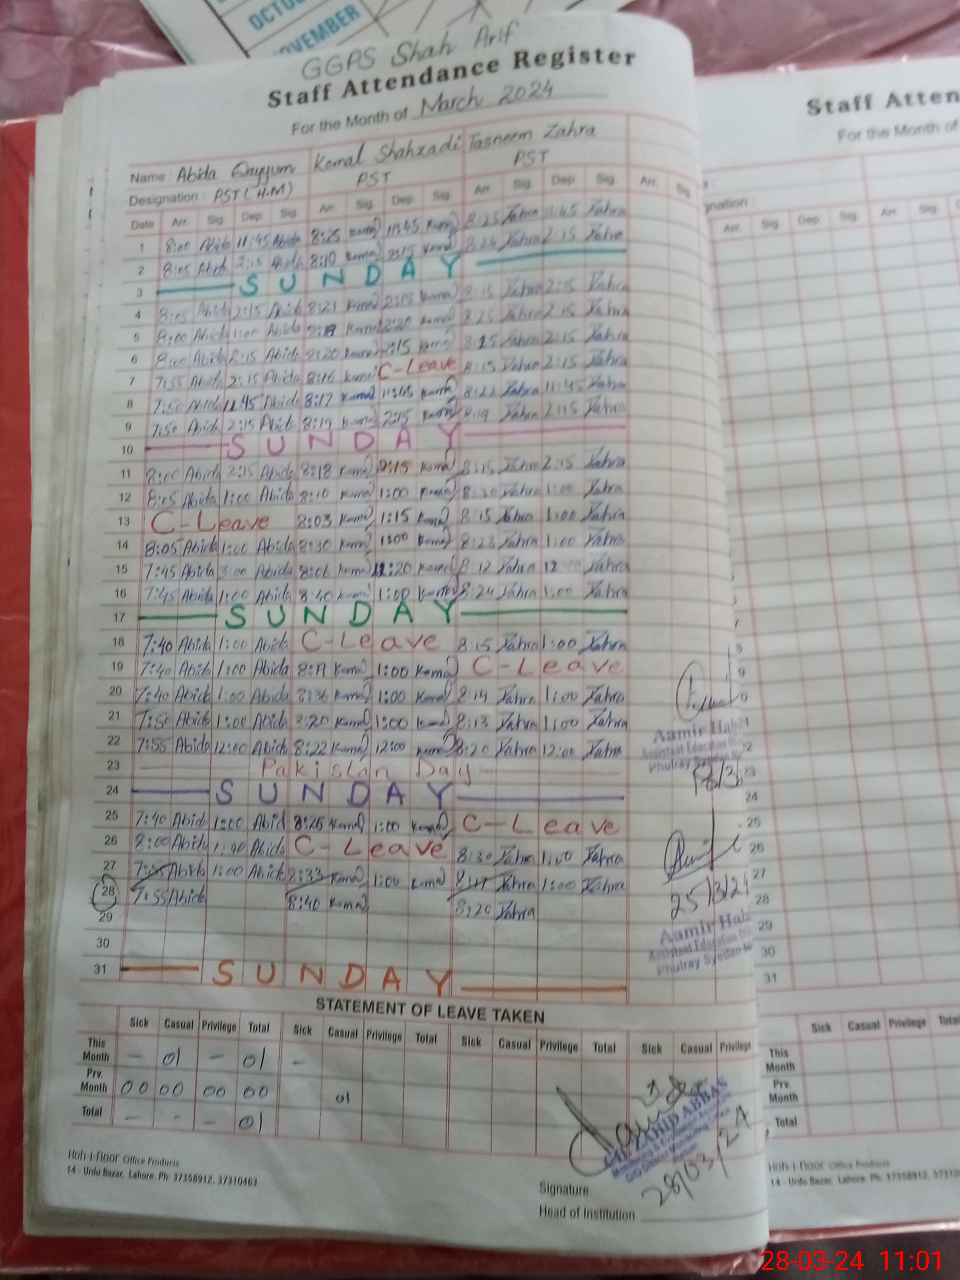 OCTOB
NOVEMBER
GGPS Shah Arif
Staff Attendance Register
For the Month of March 2024
Name Abida Qayyum Komal Shahzadi Tasneem Zahra
Designation PST (H.M) PST PST
Date Arr. Sig. Dep. Sig. Arr. Sig. Dep. Sig. Arr. Sig. Dep. Sig. Arr. Sig.
1 8:00 Abida 11:45 Abida 8:25 Komal 11:45 Komal 8:25 Zahra 11:45 Zahra
2 8:05 Abida 2:15 Abida 8:10 Komal 2:15 Komal Zahra 2:15 Zahra
3 SUNDAY
4 8:05 Abida 2:15 Abida 8:21 Komal 2:15 Komal 8:15 Zahra 2:15 Zahra
5 8:00 Abida 1:00 Abida Komal 2:20 Komal 8:25 Zahra 2:15 Zahra
6 8:00 Abida 2:15 Abida 8:20 Komal 2:15 Komal 8:25 Zahra 2:15 Zahra
7 7:55 Abida 2:15 Abida 8:16 Komal C-Leave 8:15 Zahra 2:15 Zahra
8 7:50 Abida 11:45 Abida 8:17 Komal Komal 8:22 Zahra 11:45 Zahra
9 7:50 Abida 2:15 Abida 8:19 Komal 2:15 Komal 8:19 Zahra 2:15 Zahra
10 SUNDAY
11 8:00 Abida 2:15 Abida 8:18 Komal 2:15 Komal 8:15 Zahra 2:15 Zahra
12 8:05 Abida 1:00 Abida 8:10 Komal 1:00 Komal 8:20 Zahra 1:00 Zahra
13 C-Leave 8:03 Komal 1:15 Komal 8:15 Zahra 1:00 Zahra
14 8:05 Abida 1:00 Abida 8:30 Komal 1:00 Komal 8:23 Zahra 1:00 Zahra
15 7:45 Abida Abida 8:01 Komal 12:20 Komal 8:12 Zahra 12 Zahra
16 7:45 Abida 1:00 Abida 8:40 Komal 1:00 Komal 8:24 Zahra 1:00 Zahra
17 SUNDAY
18 7:40 Abida 1:00 Abida C-Leave 8:15 Zahra 1:00 Zahra
19 7:40 Abida 1:00 Abida 8:17 Komal 1:00 Komal C-Leave
20 7:40 Abida 1:00 Abida 8:36 Komal 1:00 Komal 8:19 Zahra 1:00 Zahra
21 7:50 Abida 1:00 Abida 8:20 Komal 1:00 Komal 8:13 Zahra 1:00 Zahra
22 7:55 Abida 12:00 Abida 8:22 Komal 12:00 Komal 8:20 Zahra 12:00 Zahra
23 Pakistan Day
24 SUNDAY
25 7:40 Abida 1:00 Abida 8:25 Komal 1:00 Komal C-Leave
26 8:00 Abida 1:00 Abida C-Leave 8:30 Zahra 1:00 Zahra
27 7:55 Abida 1:00 Abida 8:33 Komal 1:00 Komal 8:17 Zahra 1:00 Zahra
28 7:55 Abida 8:40 Komal 8:20 Zahra
29
30
31 SUNDAY
Aamir Hab
18/3
25/3/24
Aamir Hab
STATEMENT OF LEAVE TAKEN
Sick Casual Privilege Total Sick Casual Privilege Total Sick Casual Privilege Total Sick Casual Privilege
This Month – 01 – 01 –
Prv. Month 00 00 00 00 01
Total – – – 01
28/03/24
Hoh-i-noor Office Products
14 - Urdu Bazar, Lahore. Ph: 37358912, 37310463
Signature
Head of Institution
Staff Atten
For the Month of
Arr. Sig. Dep. Sig. Arr. Sig.
24
25
26
27
28
29
30
31
Sick Casual Privilege Total
This Month
Prv. Month
Total
Hoh-i-noor Office Products
14 - Urdu Bazar, Lahore. Ph: 37358912, 3731
28-03-24 11:01